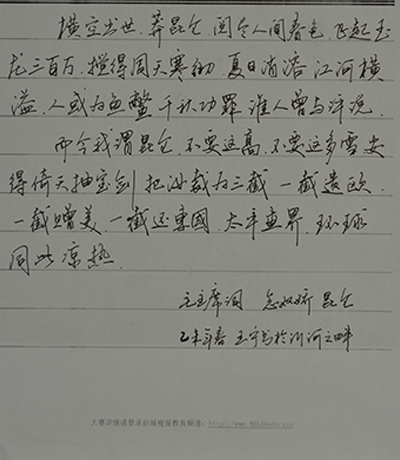 横空出世.莽昆仑.阅尽人间春色.飞起玉
龙三百万.搅得周天寒彻.夏日消溶.江河横
溢.人或为鱼鳖.千秋功罪.谁人曾与评说.
而今我谓昆仑.不要这高.不要这多雪.安
得倚天抽宝剑.把汝裁为三截.一截遗欧.
一截赠美.一截还東國.太平世界.环球
同此凉热.
毛主席词 念奴娇 昆仑
乙未年春 玉宇书於沂河之畔
大赛详情请登录 视窗教育频道: